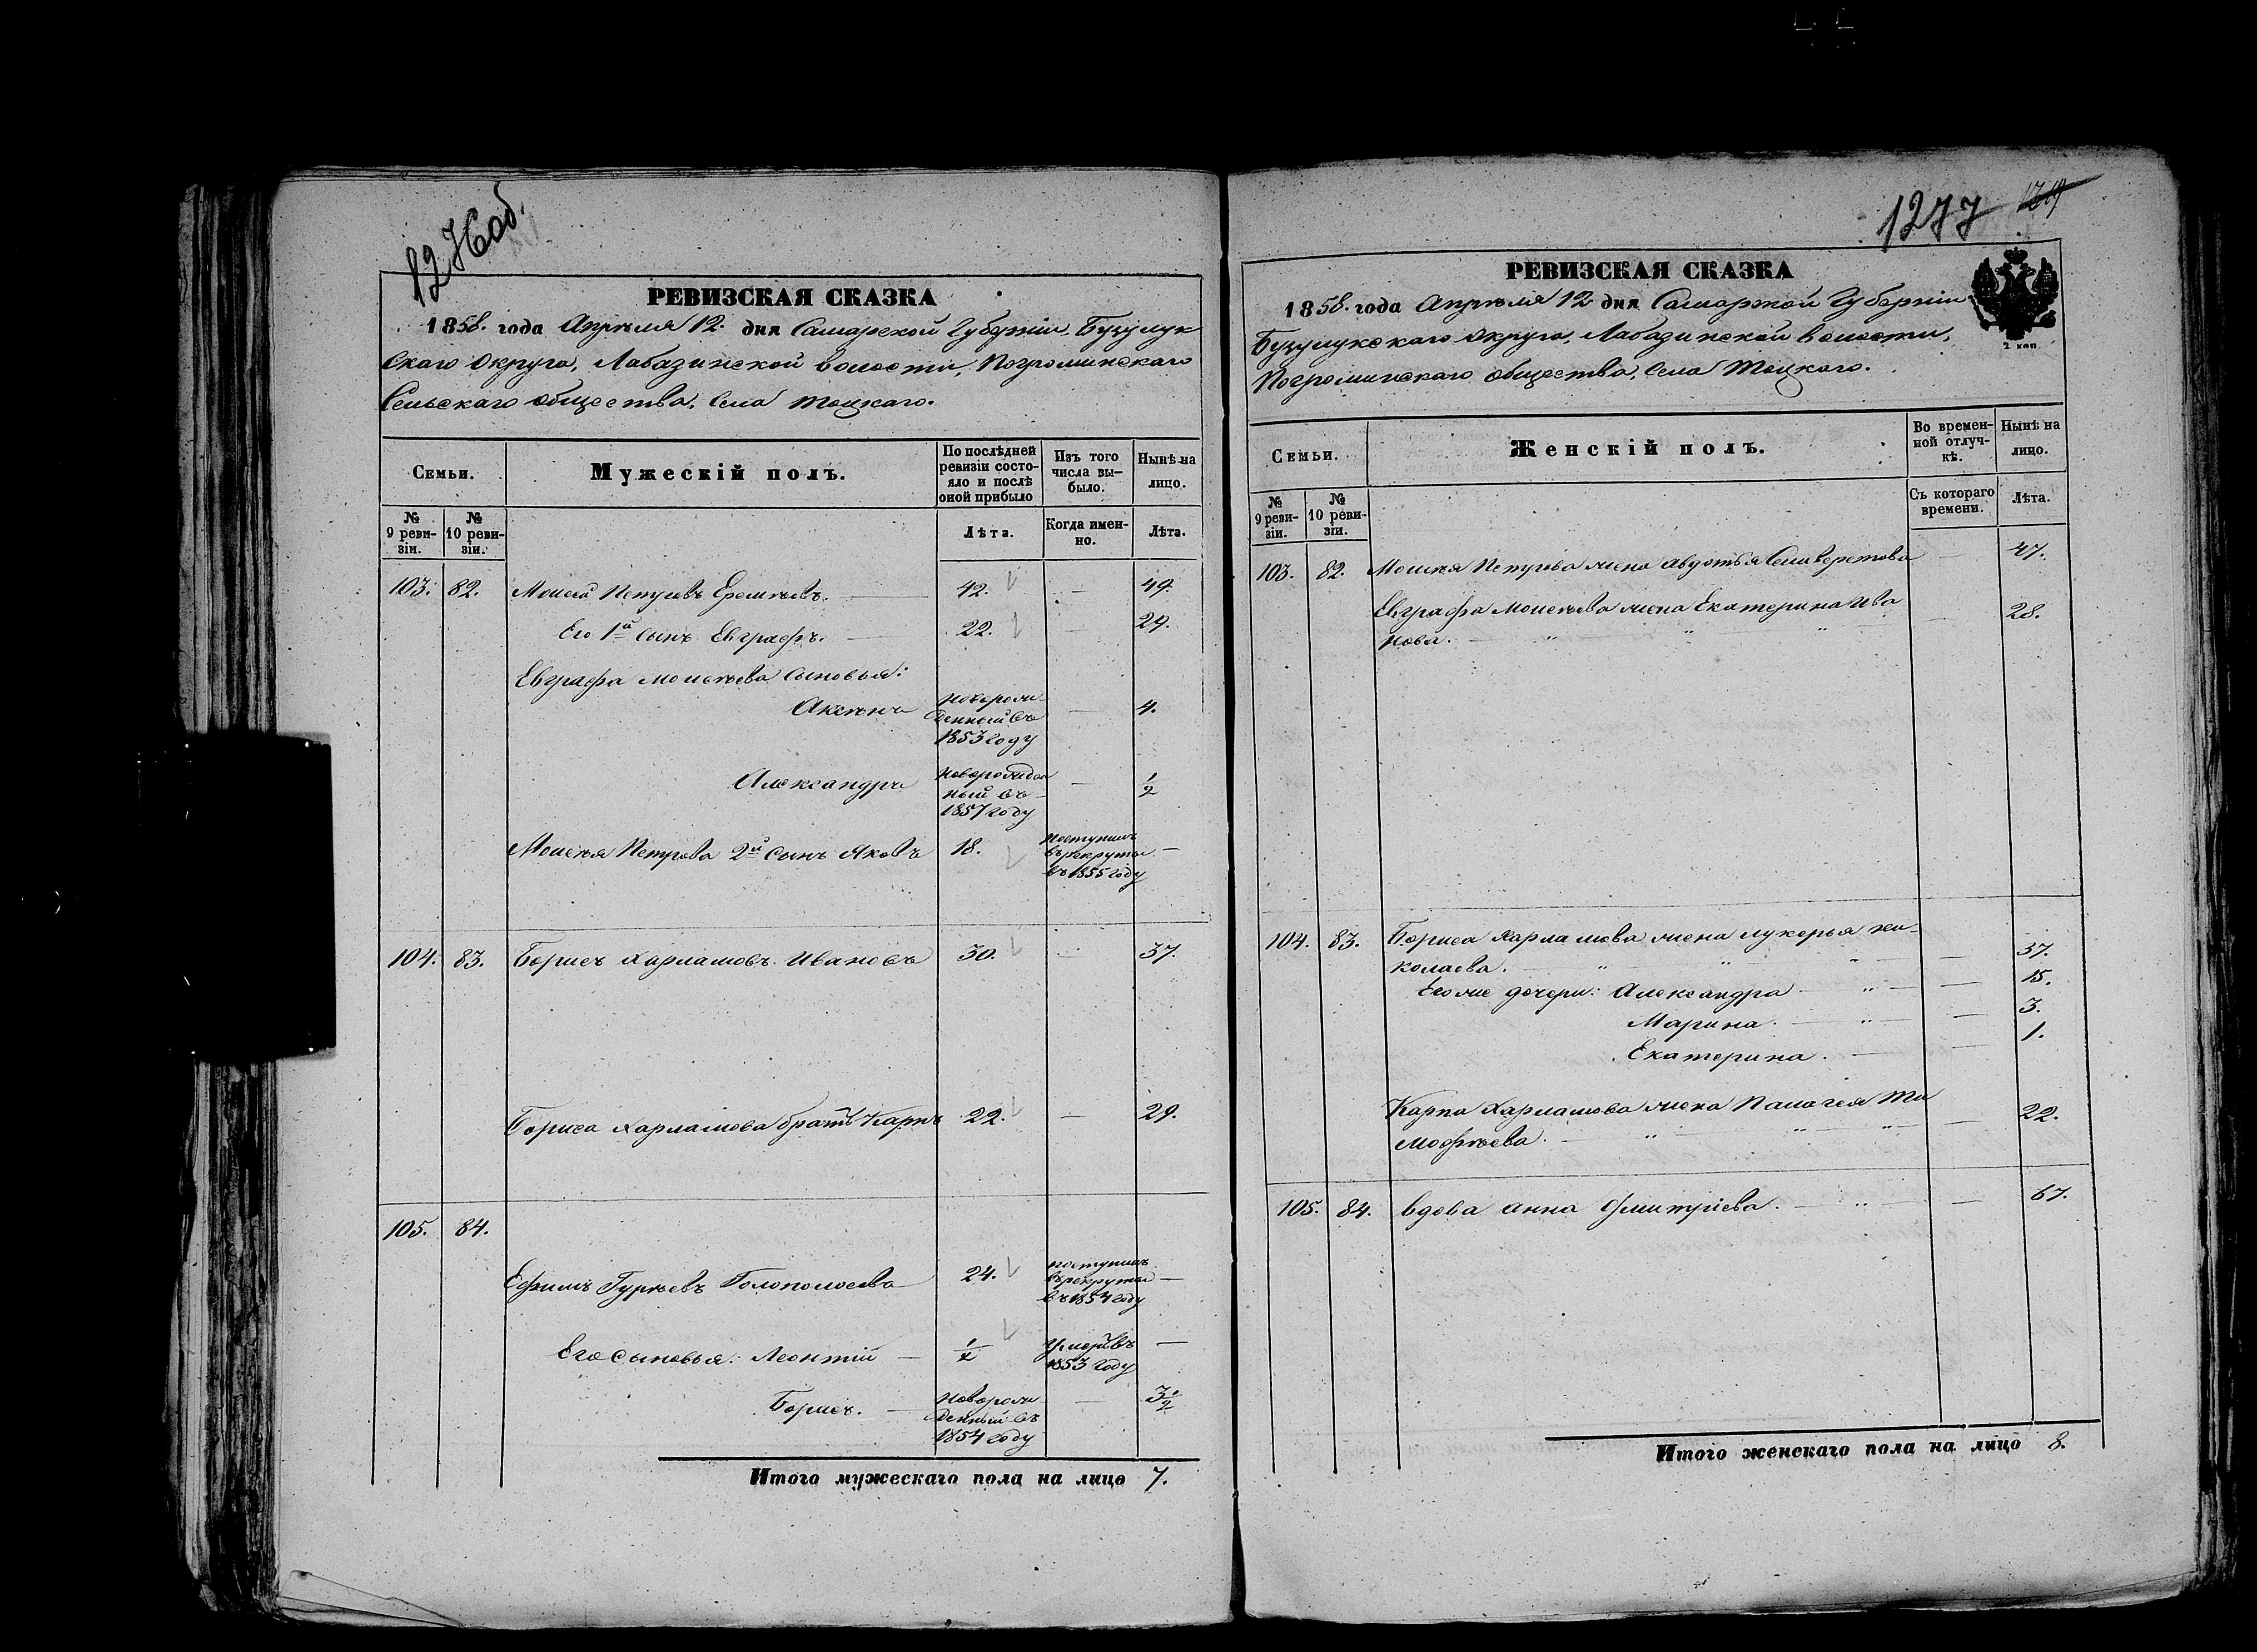 12 Коб.
РЕВИЗСКАЯ СКАЗКА
1858. года Апрѣля 12. дня Самарской Губерніи Бузулук
скаго округа, Лабазинской волости, Погроминскаго
Сельскаго общества, села Тоцкаго.
Семьи.
Мужескій полъ.
По послѣдней ревизіи состо-
яло и послѣ оной прибыло
Изъ того числа вы-
было.
Нынѣ на лицо.
№ 9 реви-
зіи.
№ 10 реви-
зіи.
Лѣта.
Когда имен-
но.
Лѣта.
103. 82. Моисей Петровъ Еремѣевъ. 42. — 49.
Его 1й сынъ Евграфъ. 22. — 29.
Евграфа Моисѣева сыновья:
Аксенъ новорож
денный въ
1853 году — 4.
Александръ новорожден
ный въ
1857 году — 1/2
Моисѣя Петрова 2й сынъ Яковъ 18. поступилъ
въ рекруты —
въ 1855 году
104. 83. Борисъ Харламовъ Ивановъ 30. — 37.
Бориса Харламова братъ Карпъ 22. — 29.
105. 84.
Ефимъ Гурьевъ Голополосовъ 24. поступилъ
въ рекруты —
въ 1854 году
Его сыновья: Леонтій — умеръ въ —
1853 году
Борисъ. — новорож
денный въ
1854 году — 3 1/2
Итого мужескаго пола на лицо 7.
1277
РЕВИЗСКАЯ СКАЗКА
1858. года Апрѣля 12 дня Самарской Губерніи
Бузулукскаго округа, Лабазинской волости,
Погроминскаго общества, села Тоцкаго.
2 коп.
Семьи.
Женскій полъ.
Во времен-
ной отлуч-
кѣ.
Нынѣ на лицо.
№ 9 реви-
зіи.
№ 10 реви-
зіи.
Съ котораго времени.
Лѣта.
103. 82. Моисѣя Петрова жена Авдотья Селиверстова — 47.
Евграфа Моисѣева жена Екатерина Ива
нова. — 28.
104. 83. Бориса Харламова жена Лукерья Ни-
колаева. — 37.
Его же дочери: Александра — 15.
Марина. — 3.
Екатерина. — 1.
Карпа Харламова жена Палагея Ти
мофѣева. — 22.
105. 84. вдова Анна Дмитріева. — 67.
Итого женскаго пола на лицо 8.